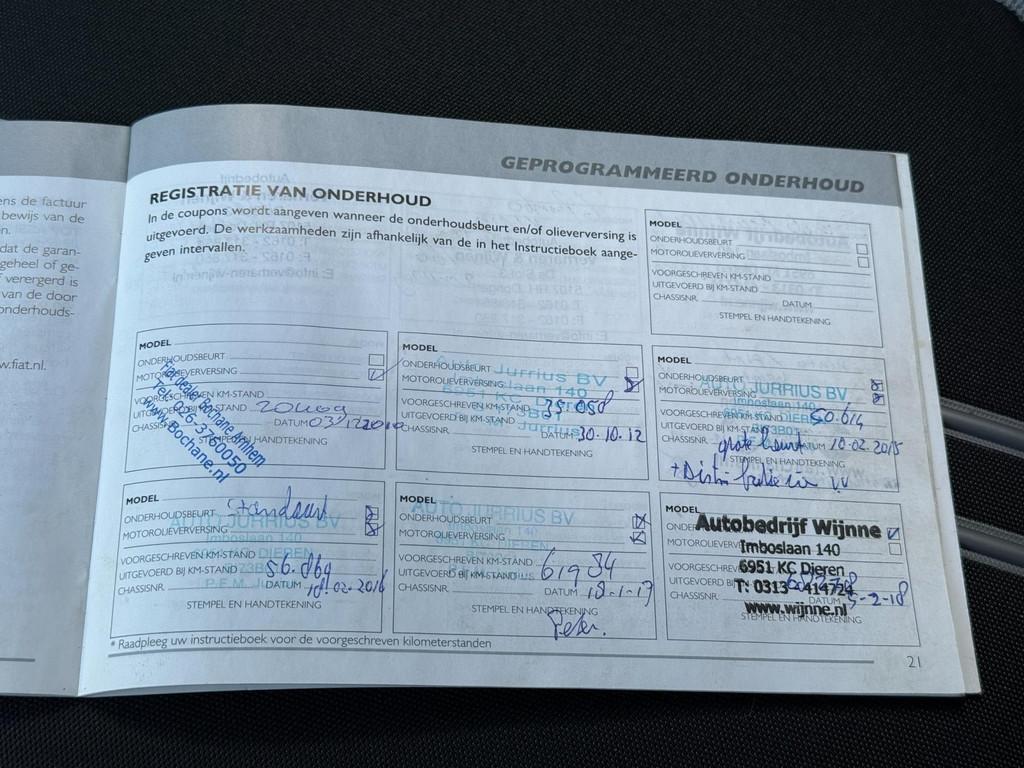 ens de factuur
bewijs van de
n.
dat de garan-
geheel of ge-
verergerd is
van de door
onderhouds-
w.fiat.nl.
GEPROGRAMMEERD ONDERHOUD
REGISTRATIE VAN ONDERHOUD
In de coupons wordt aangeven wanneer de onderhoudsbeurt en/of olieverversing is
uitgevoerd. De werkzaamheden zijn afhankelijk van de in het Instructieboek aange-
geven intervallen.
MODEL
ONDERHOUDSBEURT
MOTOROLIEVERVERSING
VOORGESCHREVEN KM-STAND
UITGEVOERD BIJ KM-STAND
CHASSISNR. DATUM
STEMPEL EN HANDTEKENING
MODEL
ONDERHOUDSBEURT
MOTOROLIEVERVERSING
VOORGESCHREVEN KM-STAND
UITGEVOERD BIJ KM-STAND
CHASSISNR. DATUM
STEMPEL EN HANDTEKENING
Fiat dealer Bochane Arnhem
Tel. 026-3760050
www.Bochane.nl
MODEL
ONDERHOUDSBEURT
MOTOROLIEVERVERSING
VOORGESCHREVEN KM-STAND
UITGEVOERD BIJ KM-STAND 35.058
CHASSISNR. DATUM 30.10.12
STEMPEL EN HANDTEKENING
Auto Jurrius BV
Imboslaan 140
6951 KC Dieren
MODEL
ONDERHOUDSBEURT
MOTOROLIEVERVERSING
VOORGESCHREVEN KM-STAND
UITGEVOERD BIJ KM-STAND 50.614
CHASSISNR. grote beurt DATUM 10-02-2015
STEMPEL EN HANDTEKENING
+ Distributie
AUTO JURRIUS BV
Imboslaan 140
MODEL
ONDERHOUDSBEURT standaart
MOTOROLIEVERVERSING
VOORGESCHREVEN KM-STAND
UITGEVOERD BIJ KM-STAND 56.069
CHASSISNR. DATUM 10-02-2016
STEMPEL EN HANDTEKENING
AUTO JURRIUS BV
Imboslaan 140
DIEREN
MODEL
ONDERHOUDSBEURT
MOTOROLIEVERVERSING
VOORGESCHREVEN KM-STAND
UITGEVOERD BIJ KM-STAND 61984
CHASSISNR. DATUM 18-1-17
STEMPEL EN HANDTEKENING
Peter.
AUTO JURRIUS BV
MODEL
Autobedrijf Wijnne
Imboslaan 140
6951 KC Dieren
T: 0313 - 414724
www.wijnne.nl
CHASSISNR. DATUM 5-2-18
STEMPEL EN HANDTEKENING
* Raadpleeg uw instructieboek voor de voorgeschreven kilometerstanden
21